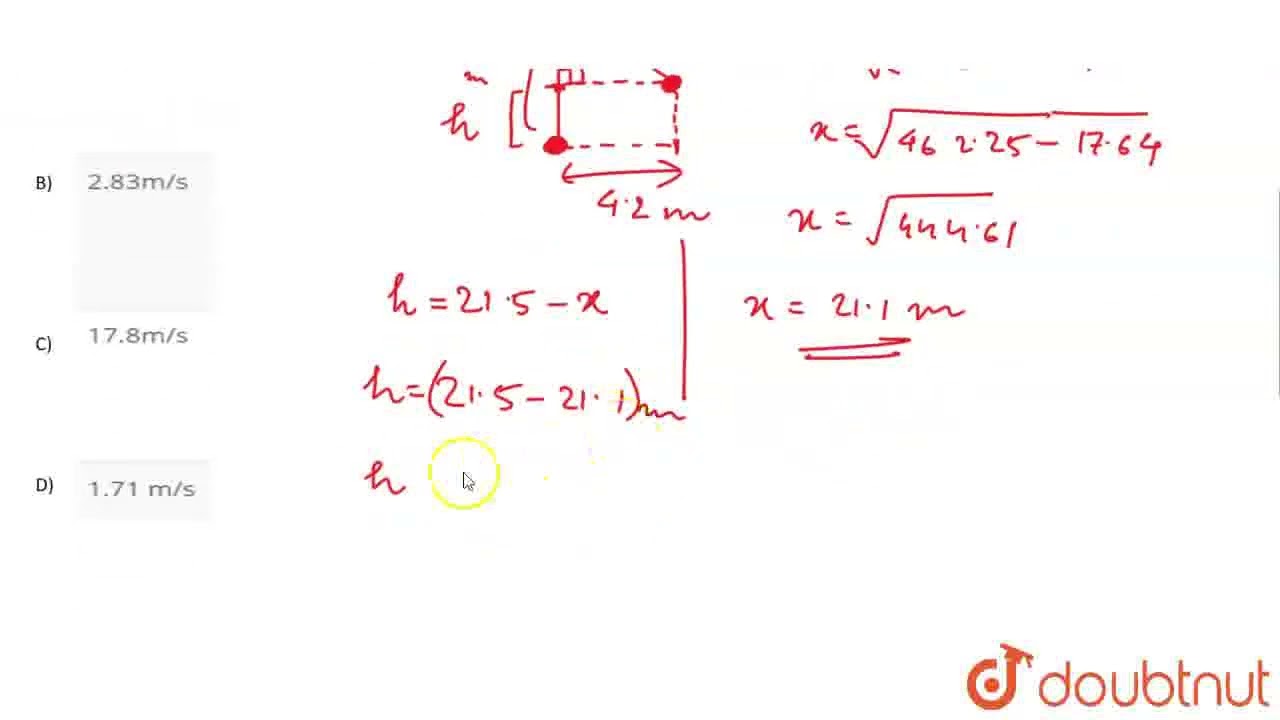 m
h
4.2 m
x = √462.25 - 17.64
x = √444.61
x = 21.1 m
B) 2.83m/s
C) 17.8m/s
D) 1.71 m/s
h = 21.5 - x
h = (21.5 - 21.1)m
h
doubtnut